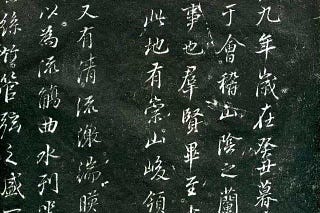 九年歲在癸丑暮
于會稽山陰之蘭
事也羣賢畢至少
此地有崇山峻領
又有清流激湍暎
以為流觴曲水列坐
絲竹管弦之盛一